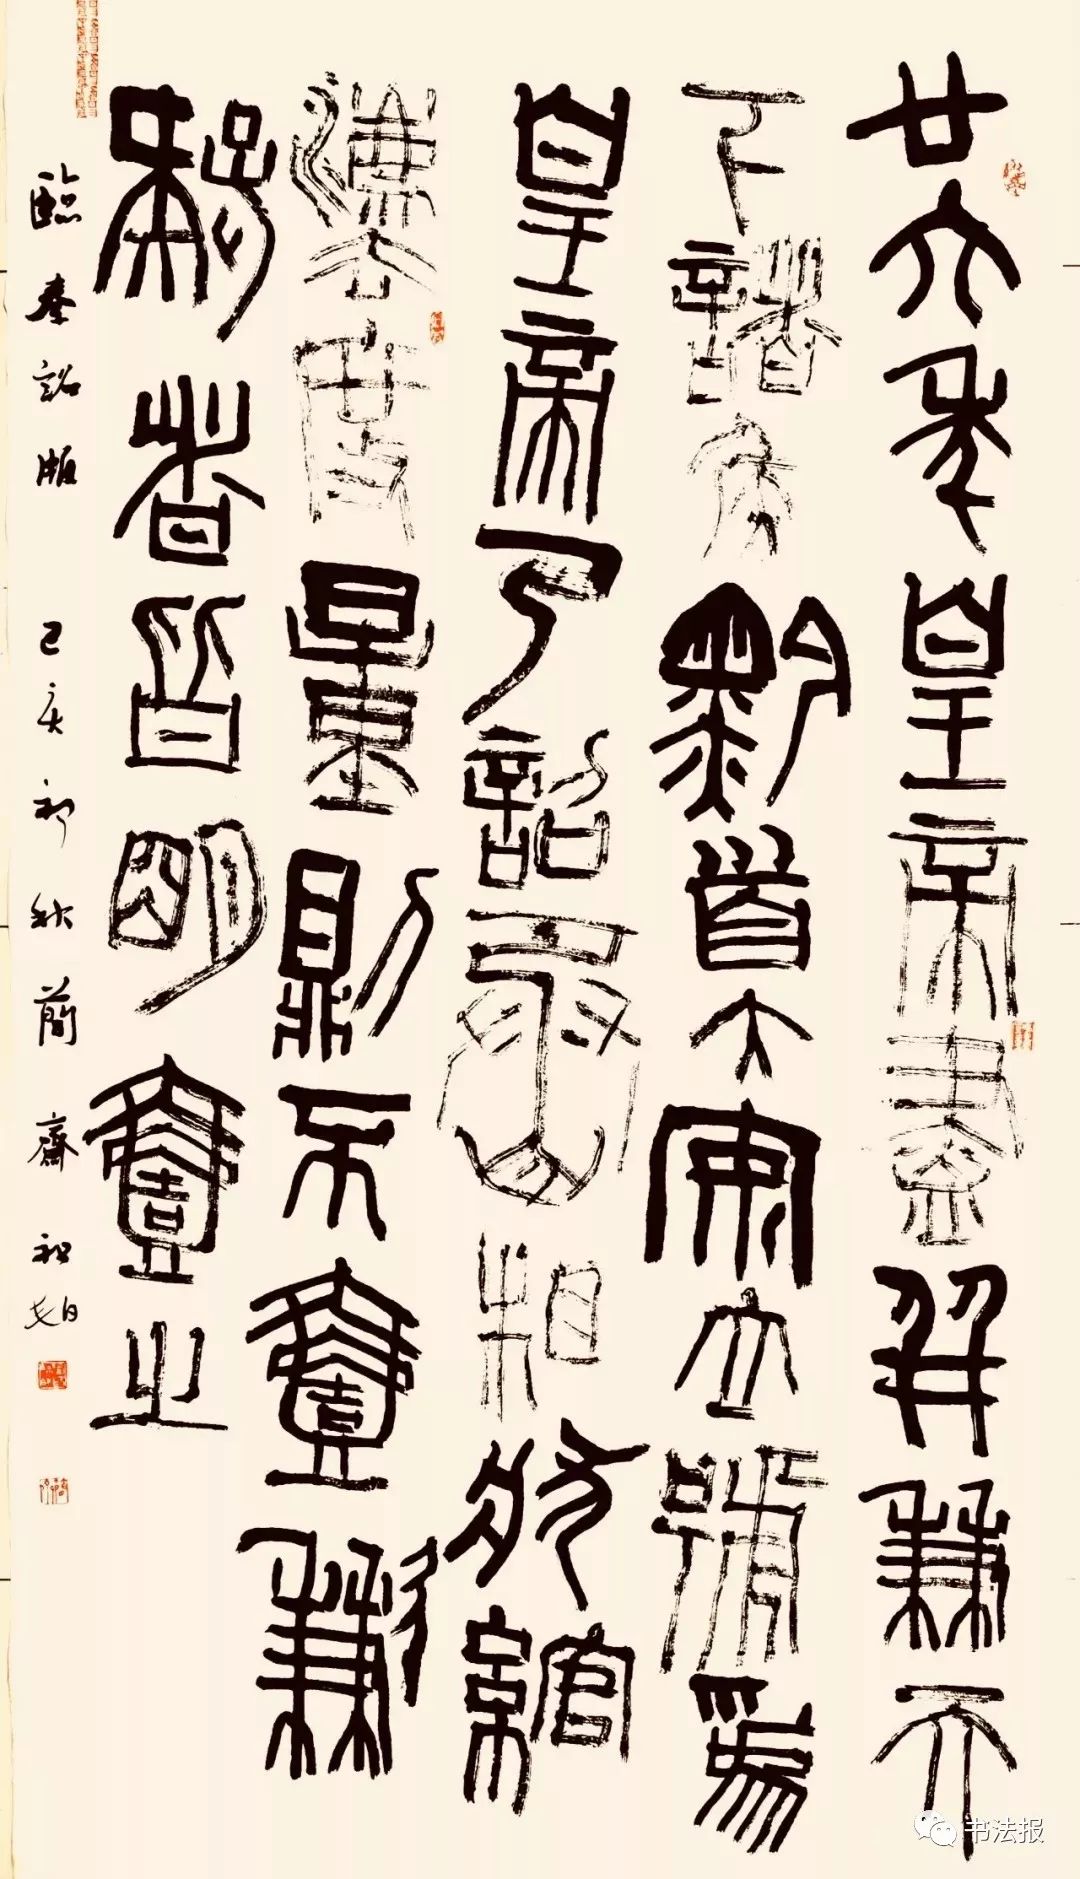 廿六年皇帝盡并兼天
下諸侯黔首大安立號爲
皇帝乃詔丞相狀綰
灋度量則不壹歉
疑者皆明壹之
臨秦詔版 己亥初秋 蘭齋
书法报